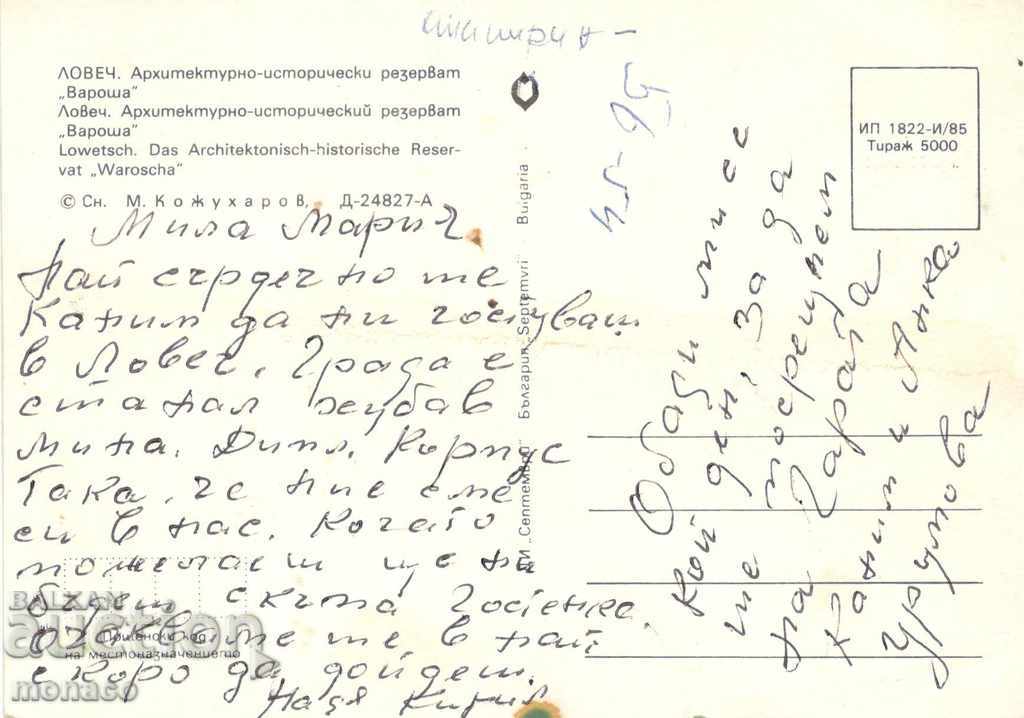 ЛОВЕЧ. Архитектурно-исторически резерват
„Вароша"
Ловеч. Архитектурно-исторический резерват
„Вароша"
Lowetsch. Das Architektonisch-historische Reser-
vat „Waroscha"
© Сн. М. Кожухаров, Д-24827-А
Мила Марич,
Най сърдечно те
каним да ни гостуваш
в Ловеч. Града е
станал хубав
мина. Дипл. Корпус
Така, че ние сме
си в нас. Когато
пожелаеш ще ни
бъдеш скъпа гостенка.
очакваме те в най
скоро да дойдеш.
Надя Кирил
Пощенски код
на местоназначението
ДИ „Септември" България „Septemvri" Bulgaria
ИП 1822-И/85
Тираж 5000
45-95
Обади ми се
кой ден, за да
те посрещнем
на гарата
Каним и Анка
Урумова
BALKAN
auction
monaco